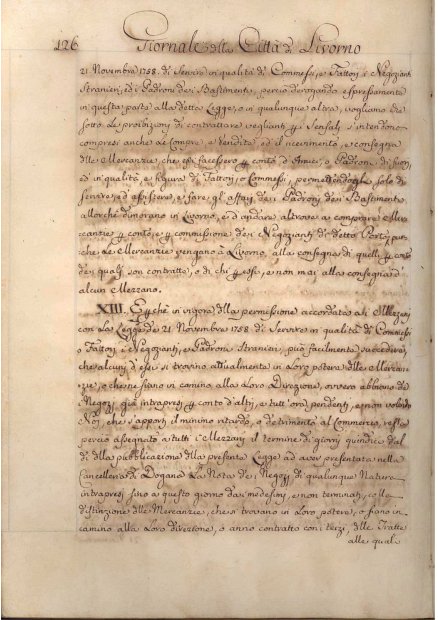 126 Giornale della Città di Livorno
21. Novembre 1758. di Servire in qualità di Commessi, e Fattori i Negozianti
Stranieri, ed i Padroni dei Bastimenti, perciò derogando espressamente
in questa parte alla detta Legge, o in qualunque altra, vogliamo che
sotto Le proibizioni di contrattare veglianti p i Sensali s'intendono
compresi anche Le Compre e Vendite, ed il ricevimento, e consegna
delle Mercanzie, che essi facessero p conto d'Amici, o Padroni di fuori,
ed in qualità e figura di Fattori, o Commessi, permettendogli solo di
servire, ed assistere, e fare gl'affari dei Padroni dei Bastimenti
allorchè dimorano in Livorno, e d'andare altrove a comprare Mer-
canzie p conto, e p commissione dei Negozianti di detto Porto, pur-
chè Le Mercanzie vengano à Livorno, alla consegna di quelli p conto
dei quali son contratte, o di chi p essi, e non mai alla consegna d'
alcun Mezzano.
XIII. E p chè in vigore della permissione accordata ai Mezzani
con La Legge de 21. Novembre 1758. di Servire in qualità di Commessi
o Fattori i Negozianti, e Padroni Stranieri, può facilmente succedere,
che alcuni d'essi si trovino attualmente in Loro potere delle Mercan-
zie, o che ne siano in camino alla Loro Direzione, ovvero abbiano de
Negozj già intrapresi p conto d'altri, e tutt'ora pendenti, e non volendo
Noi, che s'apporti il minimo ritardo, o detrimento al Commercio, resta
perciò assegnato a tutti i Mezzani il termine di giorni quindici dal
dì della pubblicazione della presente Legge ad aver presentata nella
Cancelleria di Dogana La Nota dei Negozj di qualunque Natura
intrapresi sino a questo giorno dai medesimi, e non terminati, colla
distinzione delle Mercanzie, che si trovano in Loro potere, o siano in
camino alla Loro direzione, o anno contratto con i terzi, delle Tratte
alle quali